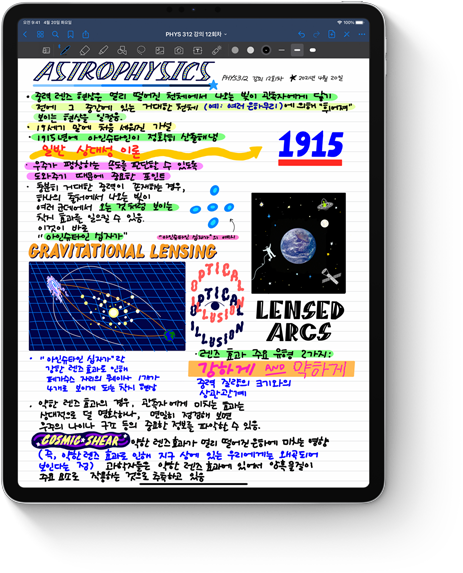 오전 9:41 4월 20일 화요일
100%
PHYS 312 강의 12회차
ASTROPHYSICS
PHYS312 강의 12회차 ★ 2021년 4월 20일
· 중력 렌즈 현상은 멀리 떨어진 천체에서 나오는 빛이 관측자에게 닿기
전에 그 중간에 있는 거대한 천체 (예: 여러 은하무리)에 의해 "휘어져"
보이는 현상을 일컬음.
· 19세기 말에 처음 세워진 가설
· 1915년에 아인슈타인이 정확히 산출해냄
일반 상대성 이론
1915
· 우주가 팽창하는 속도를 판단할 수 있도록
도와주기 때문에 중요한 포인트
· 충분히 거대한 중력이 존재하는 경우,
하나의 출처에서 나오는 빛이
여러 군데에서 오는 것처럼 보이는
착시 효과를 일으킬 수 있음.
이것이 바로
"아인슈타인 십자가"
"아인슈타인 십자가"의 예시
GRAVITATIONAL LENSING
OPTICAL
ILLUSION
OPTICAL
ILLUSION
LENSED
ARCS
· "아인슈타인 십자가"란
강한 렌즈 효과로 인해
페가수스 자리의 퀘이사 1개가
4개로 보이게 되는 착시 현상
· 렌즈 효과 주요 유형 2가지:
강하게 AND 약하게
중력 질량의 크기와의
상관관계
· 약한 렌즈 효과의 경우, 관측자에게 미치는 효과는
상대적으로 덜 명확하나, 면밀히 점검해 보면
우주의 나이나 구조 등의 중요한 정보를 파악할 수 있음.
COSMIC SHEAR 약한 렌즈 효과가 멀리 떨어진 은하에 미치는 영향
(즉, 약한 렌즈 효과로 인해 지구 상에 있는 우리에게는 왜곡되어
보인다는 점) 과학자들은 약한 렌즈 효과에 있어서 암흑물질이
주요 요소로 작용하는 것으로 추측하고 있음